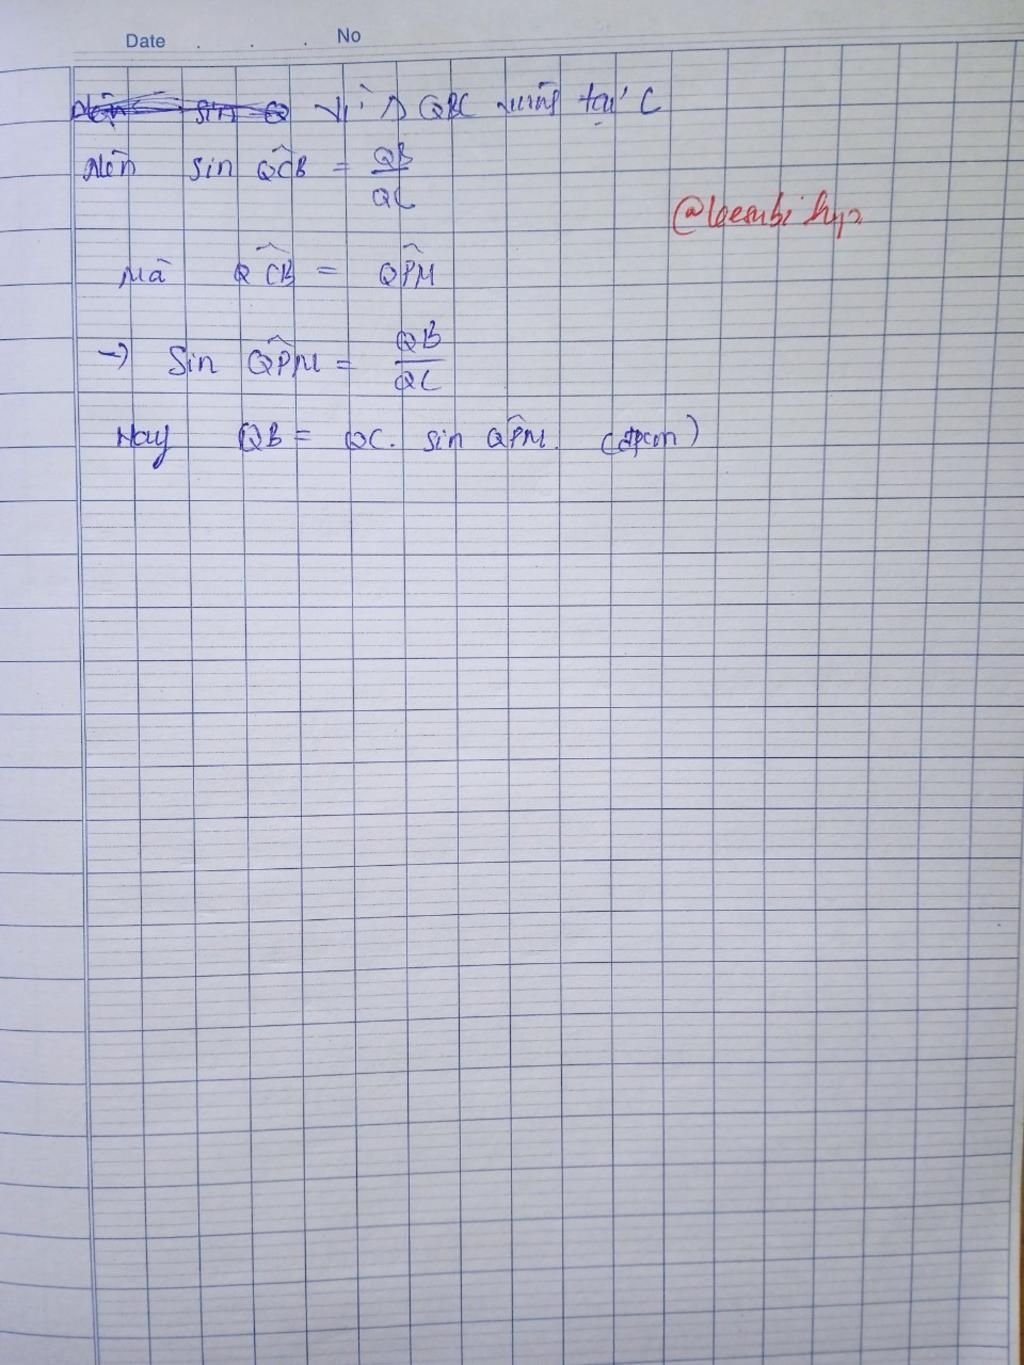 Date . . . No
Nên sin Q Vì Δ QBC vuông tại C
Nên sin QCB = QB / QC
@leesubi hyz
Mà QCB = QPM
→ Sin QPM = QB / QC
Hay QB = QC. sin QPM. (đpcm)